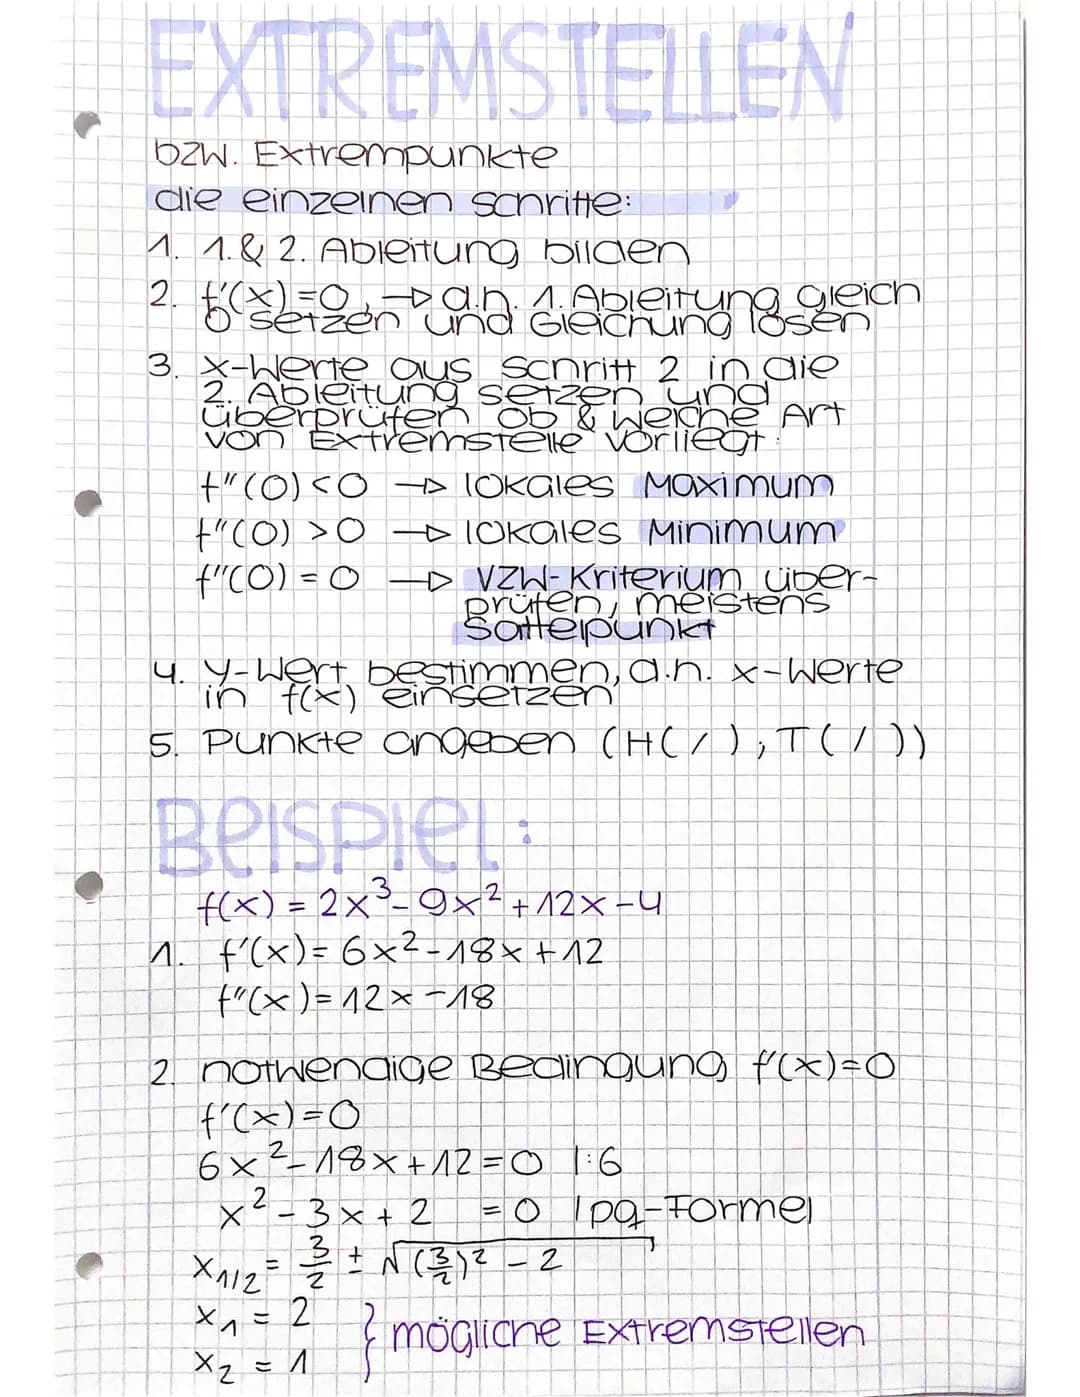 EXTREMSTELLEN
bzw. Extrempunkte
die einzelnen Schritte:
1. 1. & 2. Ableitung bilden
2. f'(x)=0, → d.h. 1. Ableitung gleich
0 setzen und Gleichung lösen
3. x-Werte aus Schritt 2 in die
2. Ableitung setzen und
überprüfen ob & welche Art
von Extremstelle vorliegt:
f''(0)<0 → lokales Maximum
f''(0) >0 → lokales Minimum
f''(0) = 0 → VZW-Kriterium über-
prüfen, meistens
Sattelpunkt
4. y-Wert bestimmen, d.h. x-Werte
in f(x) einsetzen
5. Punkte angeben (H( / ), T( / ))
Beispiel:
f(x) = 2x³-9x²+12x-4
1. f'(x)= 6x²-18x+12
f''(x)= 12x-18
2. notwendige Bedingung f'(x)=0
f'(x)=0
6x²-18x+12=0 |:6
x²-3x+2 =0 |pq-Formel
x1/2 = 3/2 ± √(3/2)² - 2
x₁ = 2
x₂ = 1
} mögliche Extremstellen